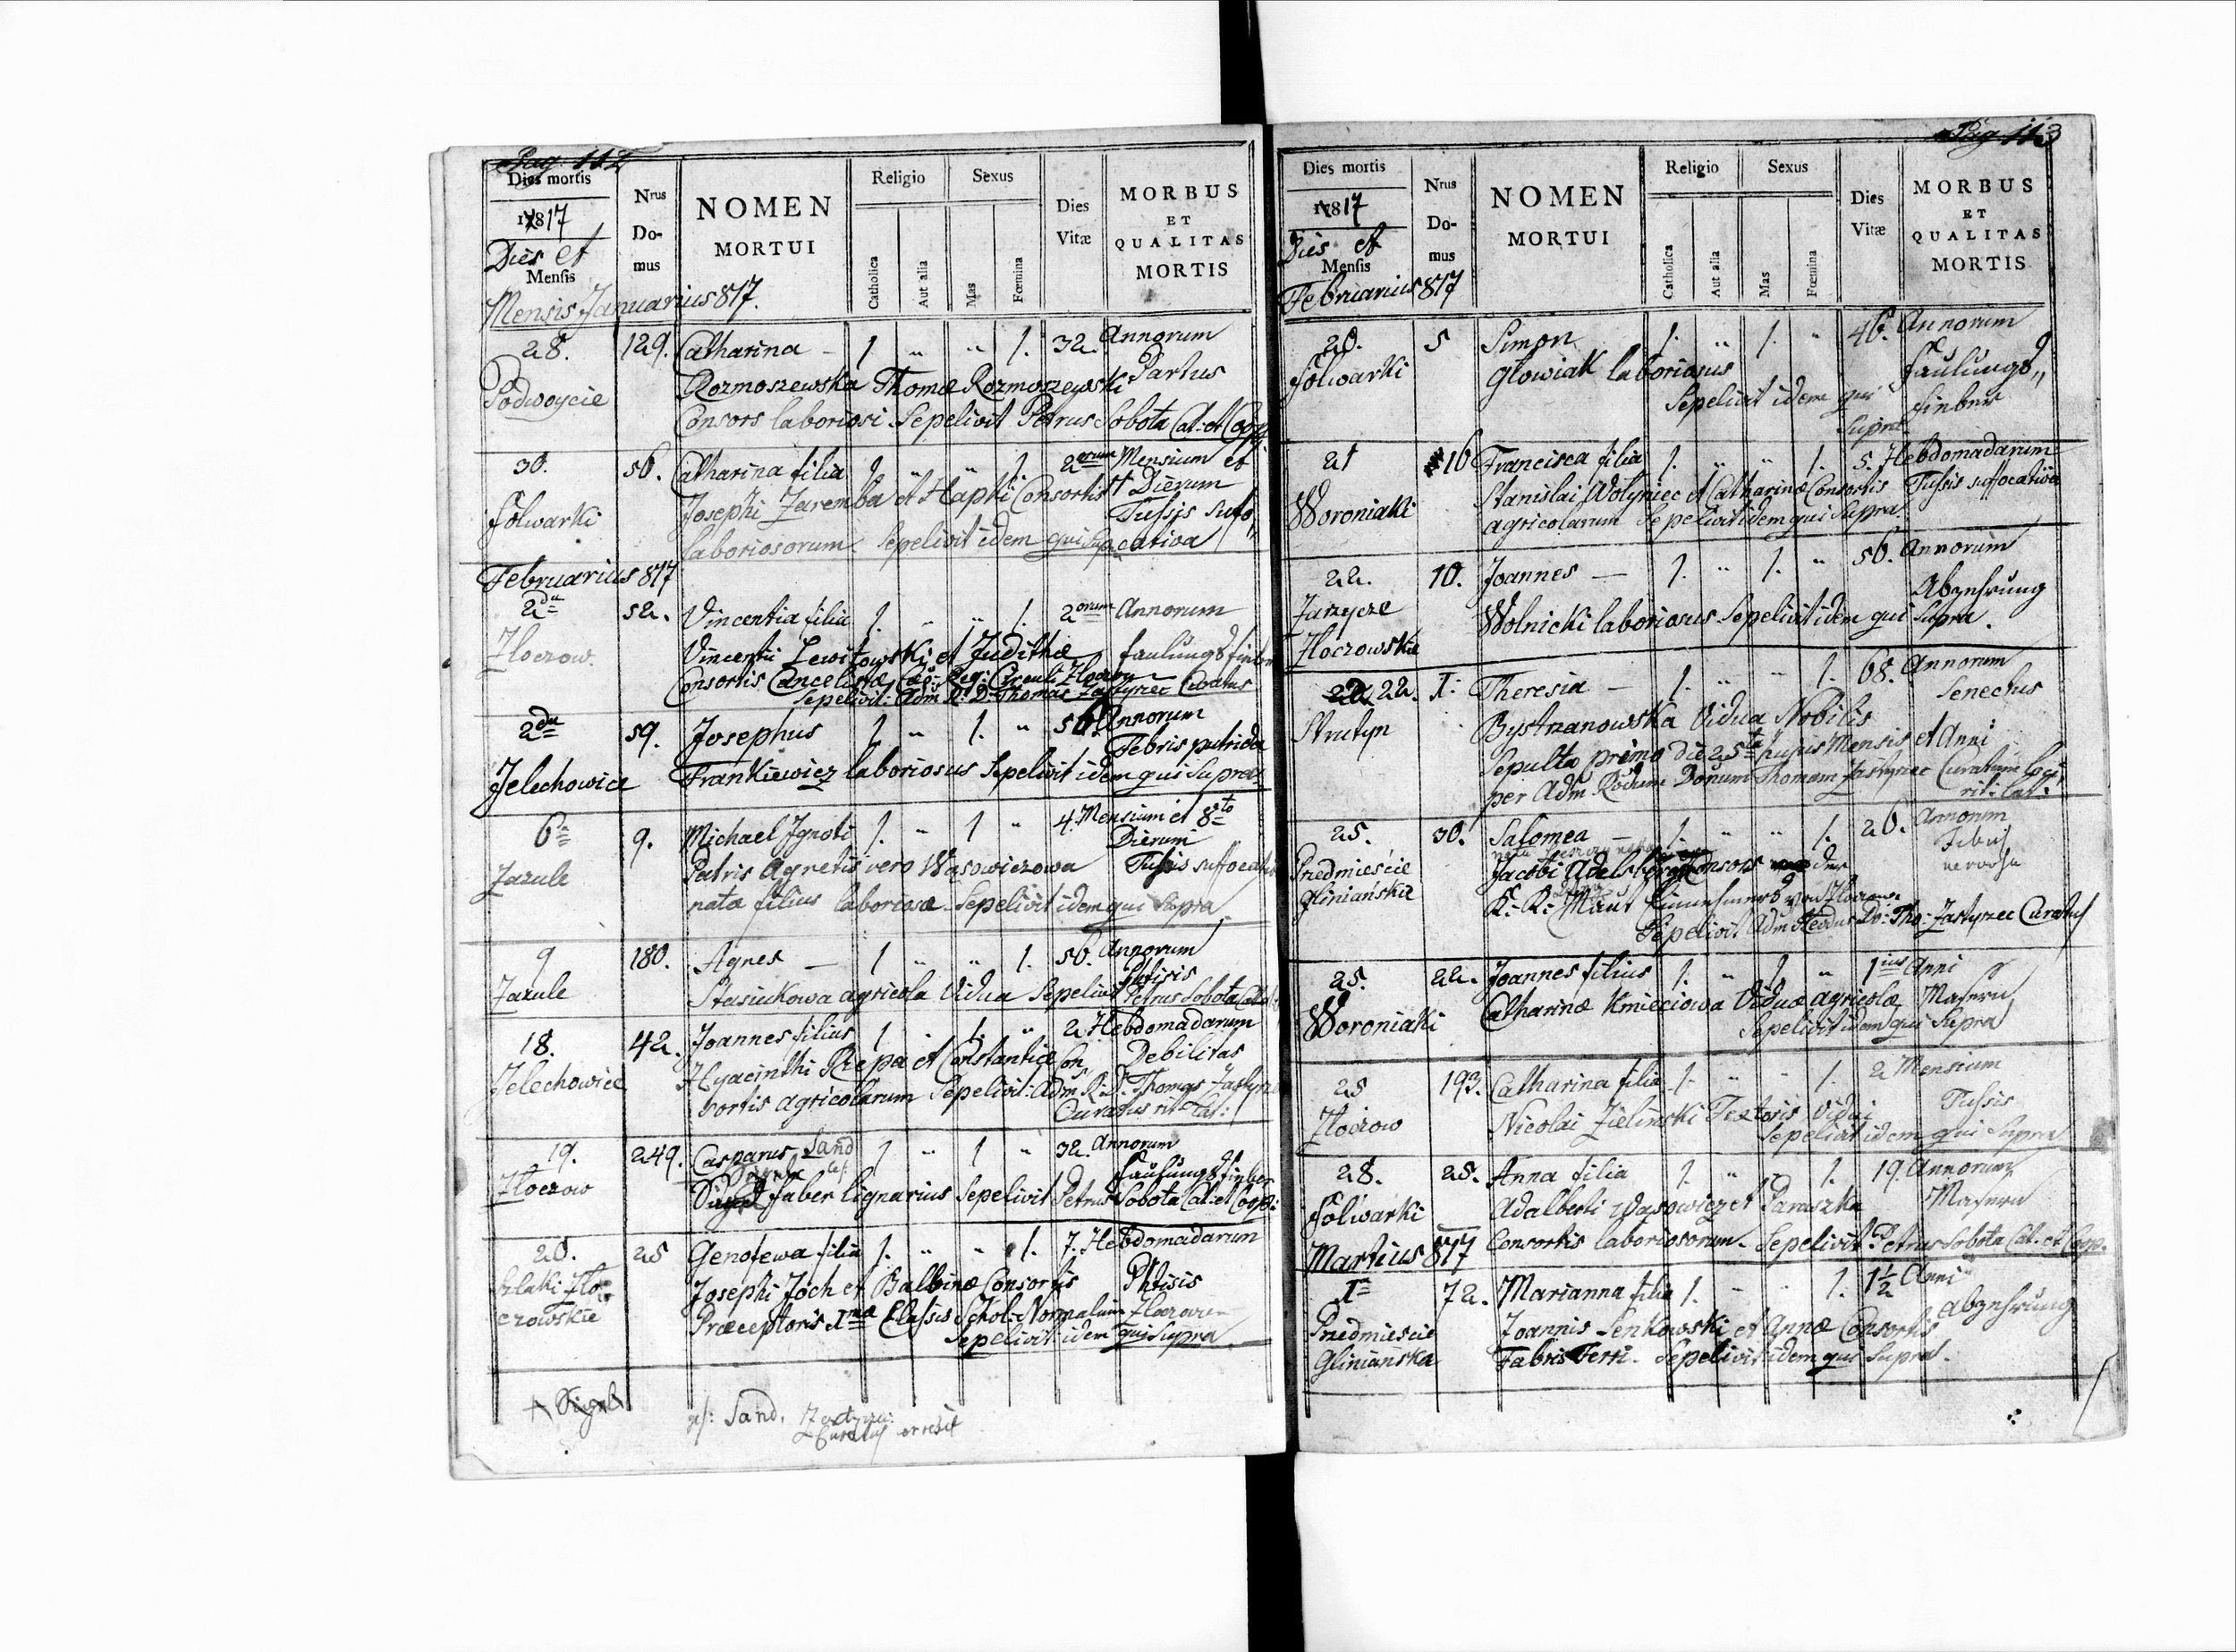 Pag. 112
Dies mortis
1817
Dies et
Mensis
Nrus
Do-
mus
NOMEN
MORTUI
Religio
Catholica
Aut alia
Sexus
Mas
Fœmina
Dies
Vitæ
MORBUS
ET
QUALITAS
MORTIS
Mensis Januarius 817.
28. 129. Catharina – 1 „ „ 1. 32. Annorum
Podwoycie Rozmoszewska Thomæ Rozmoszewski Partus
Consors laboriosi. Sepelivit Petrus Sobota Cat: et Coop:
30. 56. Catharina filia 1 „ „ 1. 2orum Mensium et
Josephi Zaremba et Hapki Consortis Dierum
Folwarki Tussis sufo„
laboriosorum. Sepelivit idem qui Supra cativa
Februarius 817
2da 52. Vincentia filia 1. „ „ 1. 2orum Annorum
Zloczow. Vincentii Lewitowski et Judithæ faulungs fieber
Consortis Cancelistæ Cæs: Reg: Circuli Zloczow
Sepelivit: Adm R: D: Thomas Zastyrzec Curatus
2da 59. Josephus 1 „ 1. „ 56. Annorum
Febris putrida
Jelechowice Frankiewicz laboriosus Sepelivit idem qui Supra
6ta 9. Michael Ignoti 1. „ 1 „ 4. Mensium et 8to
Dierum
Zazule Patris Agnetis vero Wasowiczowa Tussis suffocativa
nata filius laboriosæ. Sepelivit idem qui Supra
9 180. Agnes – 1 „ „ 1. 50. Annorum
Ptisis
Zazule Stasiukowa agricola Vidua Sepelivit Petrus Sobota
18. 42. Joannes filius 1 „ 1. „ 2. Hebdomadarum
Jelechowice Hyacinthi Rzepa et Constantiæ Con Debilitas
sortis agricolarum Sepelivit: Adm R: D: Thomas Zastyrzec
Curatus rit: Lat:
19. 249. Casparus Sand 1 „ 1 „ 32. Annorum
faulungs fieber
Zloczow faber lignarius Sepelivit Petrus Sobota Cat: et Coop:
20. 25 Genofewa filia 1. „ „ 1. 7. Hebdomadarum
Szlaki Zlo- Josephi Joch et Balbinæ Consortis Phtisis
czowskie Præceptoris Imæ Classis Schol: Normalium Zloczovien
Sepelivit idem qui Supra
Sand. Zastyrzec
Curatus
Pag 113
Dies mortis
1817
Dies et
Mensis
Nrus
Do-
mus
NOMEN
MORTUI
Religio
Catholica
Aut alia
Sexus
Mas
Fœmina
Dies
Vitæ
MORBUS
ET
QUALITAS
MORTIS
Februarius 817
20. 5 Simon 1. „ 1. „ 46. Annorum
Folwarki Glowiak laboriosus faulungs„
Sepelivit idem qui fieber
Supra
21 16 Francisca filia 1. „ „ 1. 5. Hebdomadarum
Woroniaki Stanislai Wolyniec et Catharinæ Consortis Tussis suffocativa
agricolarum Sepelivit idem qui Supra
22. 10. Joannes – 1. „ 1. „ 56. Annorum
Abzehrung
Jarzycze Wolnicki laboriosus Sepelivit idem qui Supra.
Zloczowskie
22. I. Theresia – 1. „ „ 1. 68. Annorum
Senectus
Strutyn Bystrzanowska Vidua Nobilis
Sepulta primo die 25ta hujus Mensis et Anni
per Adm Rdum Domum Thomam Zastyrzec Curatum Loci
rit: lat:
25. 30. Salomea – 1. „ „ 1. 26. Annorum
Febris
Przedmieście Jacobi Adelsberg Consors der nervosa
Gliniańskie K: K: Maut Einnehmers von Zloczow
Sepelivit Adm Rdus D: Tho: Zastyrzec Curatus
25. 22. Joannes filius 1. „ 1 „ 1ius Anni
Woroniaki Catharinæ Kmieciowa Viduæ agricolæ Masern
Sepelivit idem qui Supra
25 193. Catharina filia 1. „ „ 1. 2 Mensium
Zloczow Nicolai Zielinski Textoris Vidui Tussis
Sepelivit idem qui Supra
28. 25. Anna filia 1. „ „ 1. 19. Annorum
Folwarki Adalberti Wąsowicz et Paraszka Masern
Consortis laboriosorum. Sepelivit Petrus Sobota Cat. et Coop.
Martius 817
Ia 72. Marianna filia 1. „ „ 1. 1½ Anni
Przedmieście Joannis Senkowski et Annæ Consortis Abzehrung
Glinianska Fabris Ferri. Sepelivit idem qui Supra.